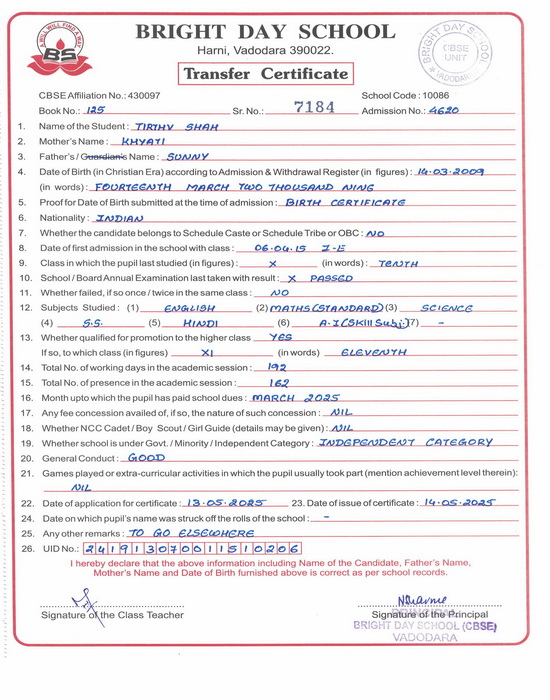 A WILL WILL FIND A WAY
BS
BRIGHT DAY SCHOOL
Harni, Vadodara 390022.
BRIGHT DAY SCHOOL
CBSE
UNIT
VADODARA
Transfer Certificate
CBSE Affiliation No.: 430097 School Code : 10086
Book No.: 125 Sr. No.: 7184 Admission No.: 4620
1. Name of the Student : TIRTHV SHAH
2. Mother's Name : KHYATI
3. Father's / Guardian's Name : SUNNY
4. Date of Birth (in Christian Era) according to Admission & Withdrawal Register (in figures) : 14.03.2009
(in words) : FOURTEENTH MARCH TWO THOUSAND NINE
5. Proof for Date of Birth submitted at the time of admission : BIRTH CERTIFICATE
6. Nationality : INDIAN
7. Whether the candidate belongs to Schedule Caste or Schedule Tribe or OBC : NO
8. Date of first admission in the school with class : 06.04.15 I-E
9. Class in which the pupil last studied (in figures) : X (in words) : TENTH
10. School / Board Annual Examination last taken with result : X PASSED
11. Whether failed, if so once / twice in the same class : NO
12. Subjects Studied : (1) ENGLISH (2) MATHS (STANDARD) (3) SCIENCE
(4) S.S. (5) HINDI (6) A.I (Skill Subj.) (7) -
13. Whether qualified for promotion to the higher class YES
If so, to which class (in figures) XI (in words) ELEVENTH
14. Total No. of working days in the academic session : 192
15. Total No. of presence in the academic session : 162
16. Month upto which the pupil has paid school dues : MARCH 2025
17. Any fee concession availed of, if so, the nature of such concession : NIL
18. Whether NCC Cadet / Boy Scout / Girl Guide (details may be given) : NIL
19. Whether school is under Govt. / Minority / Independent Category : INDEPENDENT CATEGORY
20. General Conduct : GOOD
21. Games played or extra-curricular activities in which the pupil usually took part (mention achievement level therein):
NIL
22. Date of application for certificate : 13.05.2025 23. Date of issue of certificate : 14.05.2025
24. Date on which pupil's name was struck off the rolls of the school : -
25. Any other remarks : TO GO ELSEWHERE
26. UID No.: 241913070011510206
I hereby declare that the above information including Name of the Candidate, Father's Name,
Mother's Name and Date of Birth furnished above is correct as per school records.
Signature of the Class Teacher Signature of the Principal
PRINCIPAL
BRIGHT DAY SCHOOL (CBSE)
VADODARA